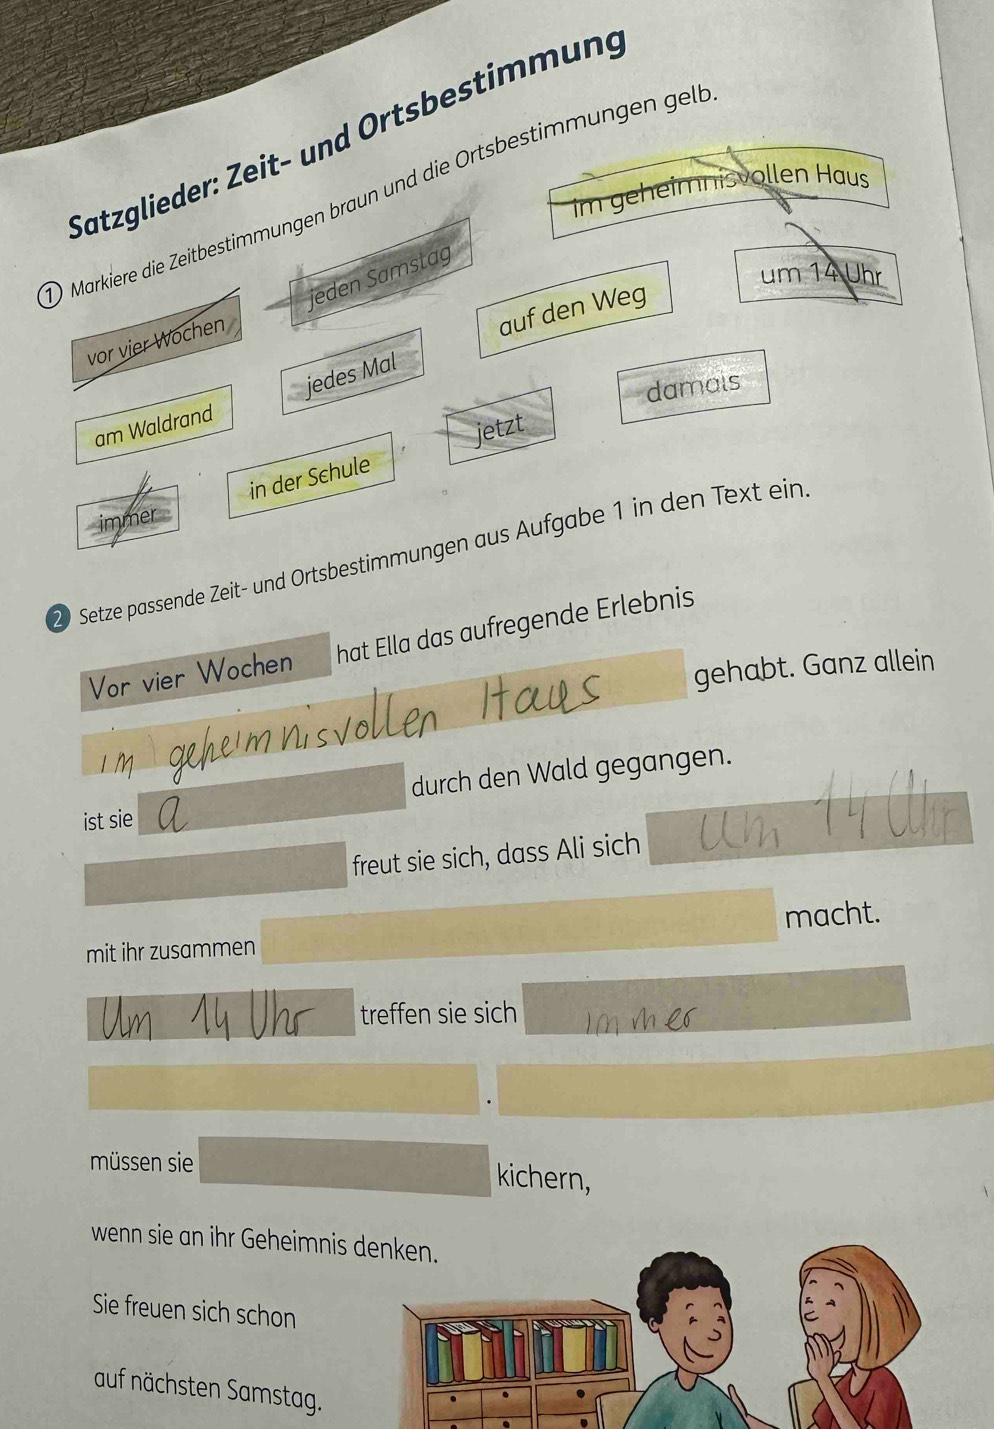 Satzglieder: Zeit- und Ortsbestimmung
1 Markiere die Zeitbestimmungen braun und die Ortsbestimmungen gelb.
im geheimnisvollen Haus
jeden Samstag
um 14 Uhr
vor vier Wochen
auf den Weg
jedes Mal
damals
am Waldrand
jetzt
in der Schule
immer
2 Setze passende Zeit- und Ortsbestimmungen aus Aufgabe 1 in den Text ein.
Vor vier Wochen hat Ella das aufregende Erlebnis
im geheimnisvollen Haus gehabt. Ganz allein
ist sie a durch den Wald gegangen.
freut sie sich, dass Ali sich um 14 Uhr
mit ihr zusammen macht.
Um 14 Uhr treffen sie sich immer
.
müssen sie kichern,
wenn sie an ihr Geheimnis denken.
Sie freuen sich schon
auf nächsten Samstag.